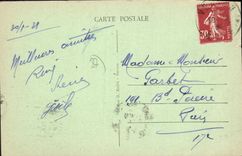 CARTE POSTALE
Meilleures amitiés
René
Madame Monsieur
Farbet
191. Bd Péreire
Paris
17e